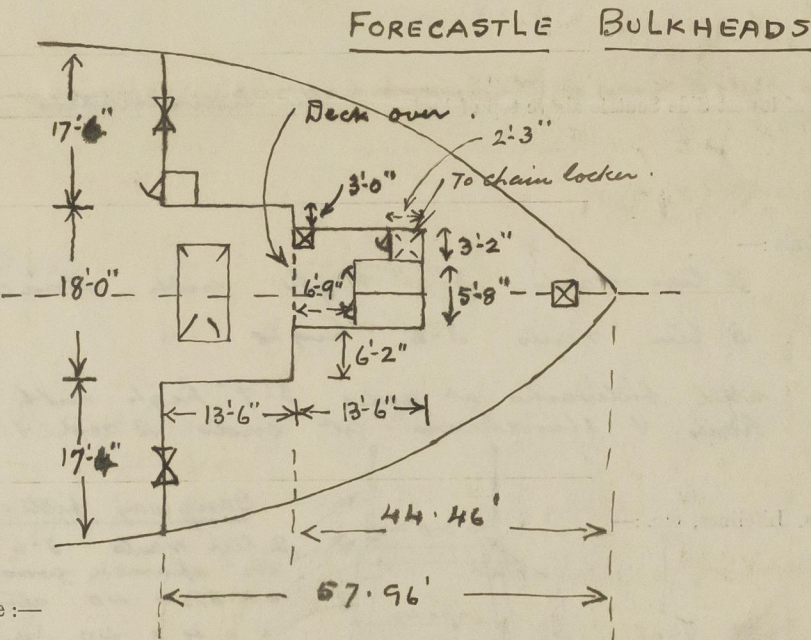 FORECASTLE BULKHEADS
Deck over.
2'-3"
To chain locker.
3'-0"
3'-2"
18'-0"
6'-9"
5'-8"
6'-2"
13'-6" 13'-6"
44.46'
57.96'
e:—